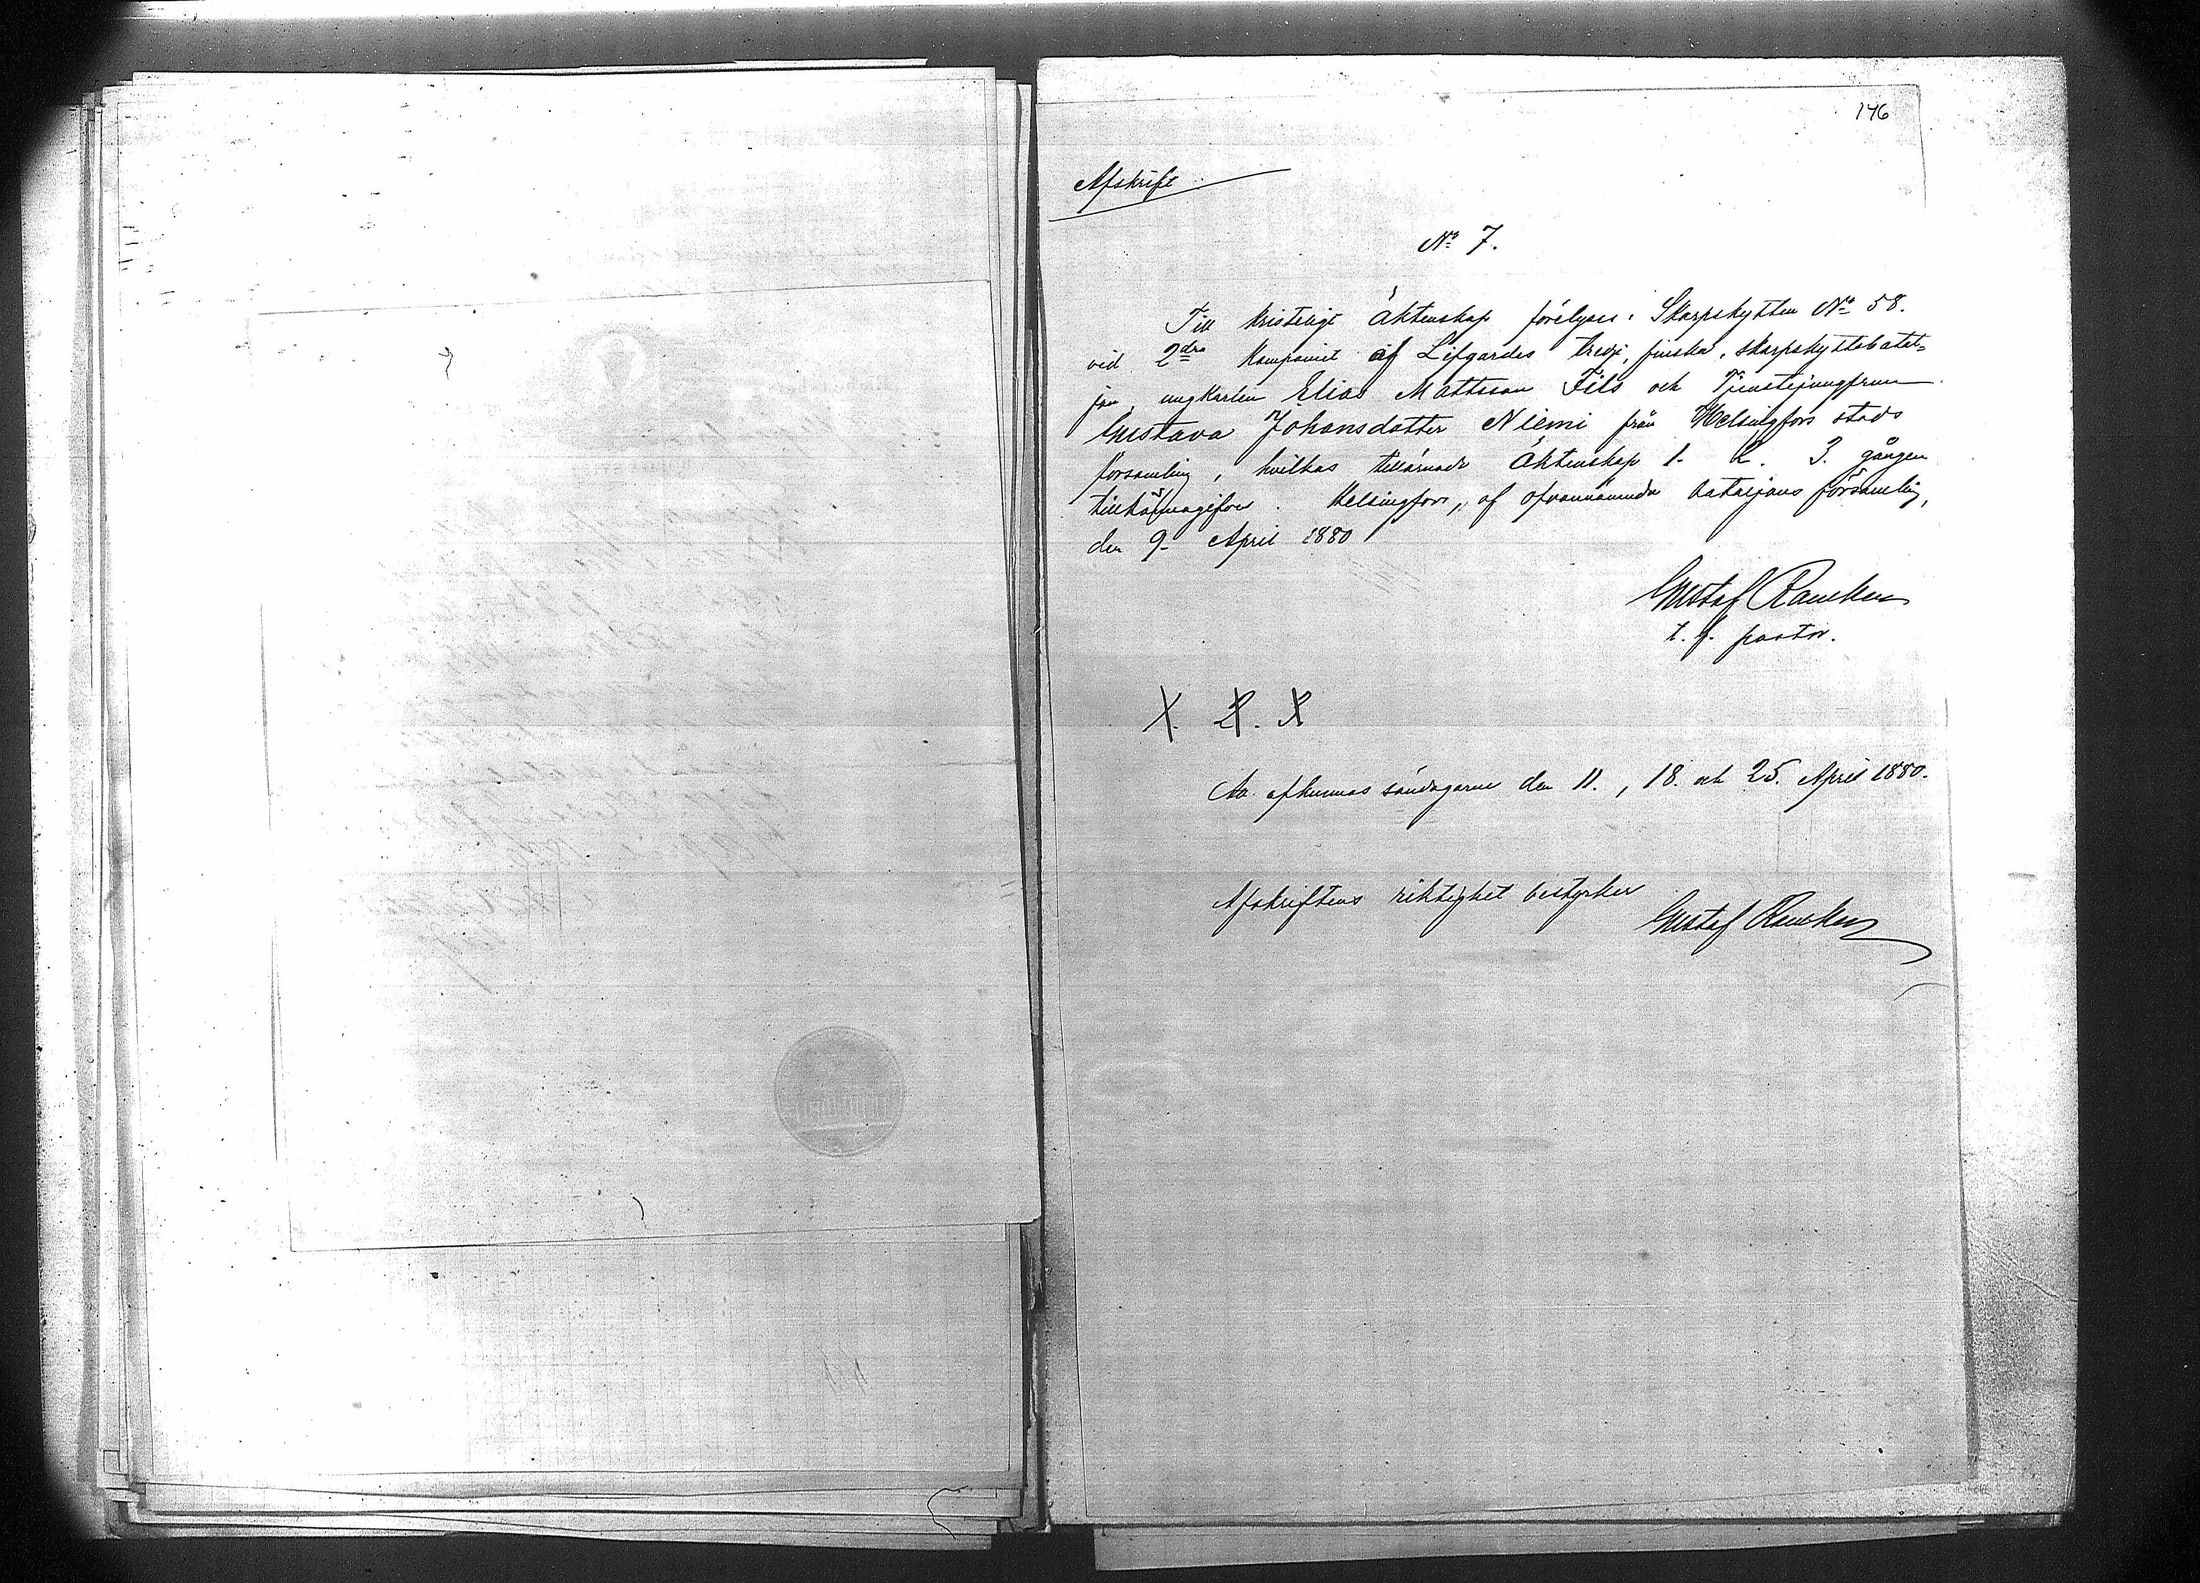 146
Afskrift
No 7.
Till kristeligt äktenskap förelyses: Skarpskytten No 58.
vid 2dra Kompaniet af Lifgardes tredje, finska, skarpskyttebatal=
jon ungkarlen Elias Mattsson Fils och Tjenstejungfrun
Gustava Johansdotter Niemi från Helsingfors stads
församling, hvilkas tillärnade äktenskap 1. 2. 3. gången
tillkännagifves. Helsingfors, af ofvannämnda bataljons församling,
den 9. April 1880
Gustaf Rancken
t. f. pastor.
1. 2. 3
Aa. afkunnas söndagarne den 11., 18. och 25. April 1880.
Afskriftens riktighet bestyrker
Gustaf Rancken